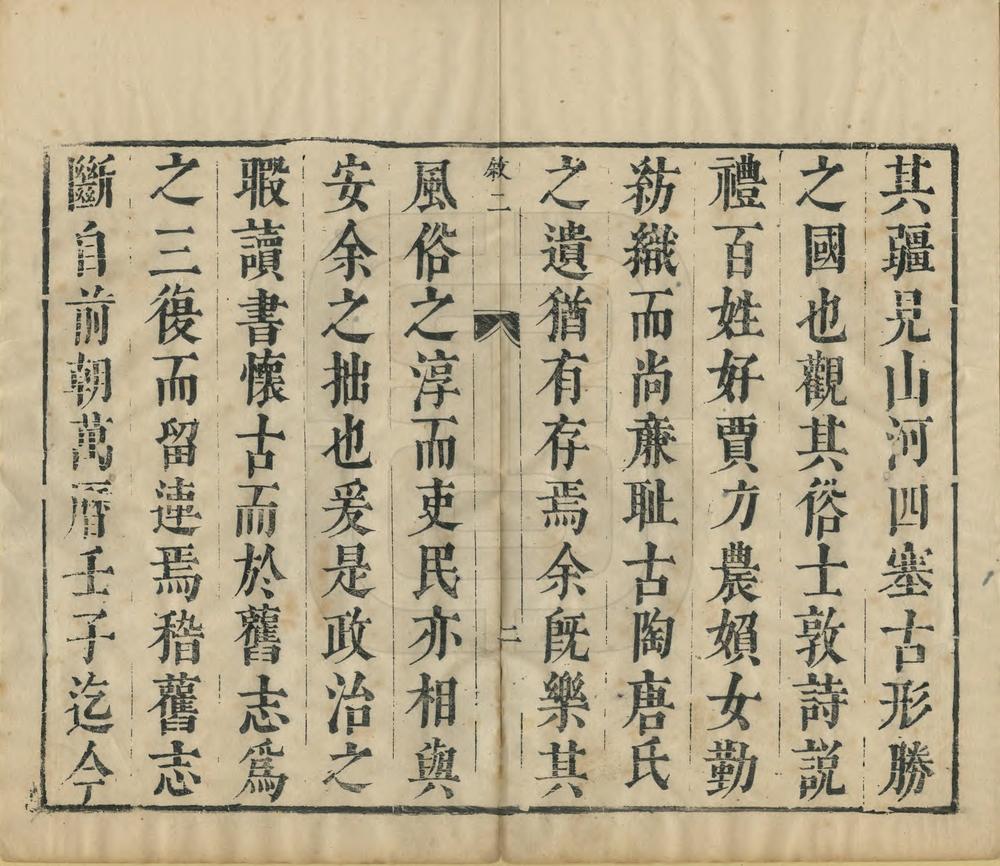 其疆見山河四塞古形勝
之國也觀其俗士敦詩説
禮百姓好賈力農嬾女勤
紡織而尚亷耻古陶唐氏
之遺猶有存焉余既樂其
敘二
二
風俗之淳而吏民亦相與
安余之拙也爰是政治之
暇讀書懷古而於舊志爲
之三復而留連焉稽舊志
斷自前朝萬曆壬子迄今